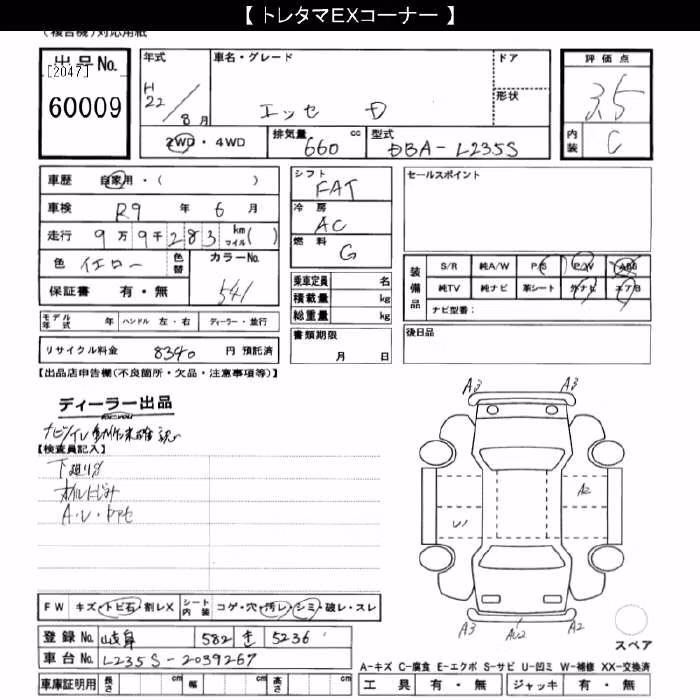 【 トレタマEXコーナー 】
(複合機)対応用紙
出品No.
[2047]
60009
年式
H22/8月
車名・グレード
エッセ D
ドア
形状
2WD・4WD
排気量
660 cc
型式
DBA-L235S
評価点
3.5
内装
C
車歴 自家用・( )
車検 R9 年 6 月
走行 9万9千283 km マイル( )
色 イエロー 色替
カラーNo.
541
保証書 有・無
シフト
FAT
冷房
AC
燃料
G
乗車定員 名
積載量 kg
総重量 kg
セールスポイント
装備品
S/R 純A/W P/S P/W ABS
純TV 純ナビ 革シート 外ナビ エアB
ナビ型番:
モデル年式 年 ハンドル 左・右 ディーラー・並行
リサイクル料金 8340 円 預託済
書類期限
月 日
後日品
【出品店申告欄(不良箇所・欠品・注意事項等)】
ディーラー出品
【検査員記入】
下廻りサ
オイルにじみ
A・U・ヤケ
A3 A3
A2
U1
A3 AU2 A2
スペア
FW キズ・トビ石・割レX
シート内装 コゲ・穴・汚レ・シミ・破レ・スレ
登録No. 岐阜 582 を 5236
車台No. L235S-2039267
A-キズ C-腐食 E-エクボ S-サビ U-凹ミ W-補修 XX-交換済
車庫証明用 長さ cm 幅 cm 高さ cm
工具 有・無 ジャッキ 有・無